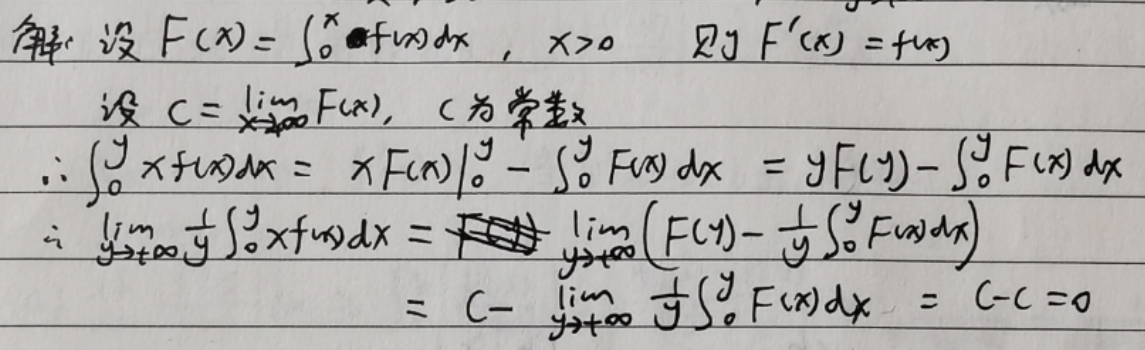 解: 设 F(x) = ∫₀ˣ f(x)dx , x>0 则 F'(x) = f(x)
设 C = lim_{x→+∞} F(x), C为常数
∴ ∫₀ʸ xf(x)dx = xF(x)|₀ʸ - ∫₀ʸ F(x)dx = yF(y) - ∫₀ʸ F(x)dx
∴ lim_{y→+∞} 1/y ∫₀ʸ xf(x)dx = lim_{y→+∞} (F(y) - 1/y ∫₀ʸ F(x)dx)
= C - lim_{y→+∞} 1/y ∫₀ʸ F(x)dx = C-C=0